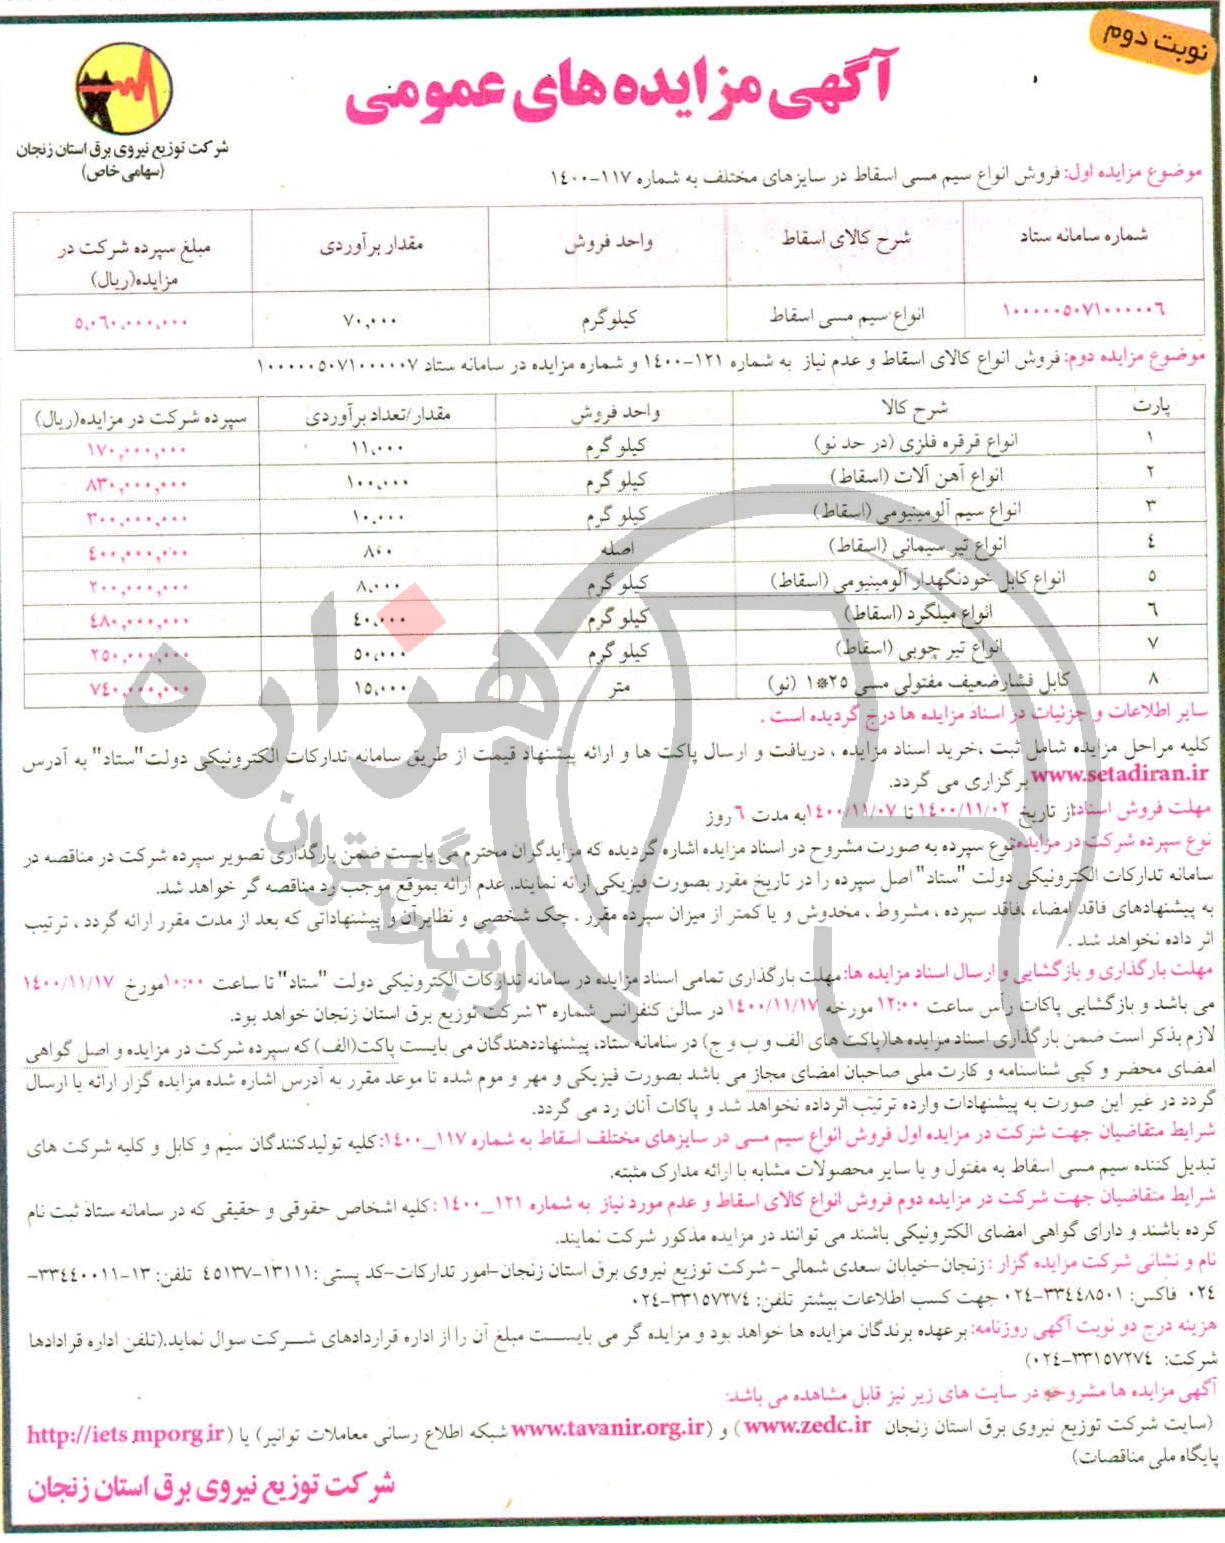 نوبت دوم
آگهی مزایده های عمومی
شرکت توزیع نیروی برق استان زنجان
(سهامی خاص)
موضوع مزایده اول: فروش انواع سیم مسی اسقاط در سایزهای مختلف به شماره ۱۱۷-۱۴۰۰
شماره سامانه ستاد | شرح کالای اسقاط | واحد فروش | مقدار برآوردی | مبلغ سپرده شرکت در مزایده(ریال)
۱۰۰۰۰۰۵۰۷۱۰۰۰۰۰۶ | انواع سیم مسی اسقاط | کیلوگرم | ۷۰,۰۰۰ | ۵,۰۶۰,۰۰۰,۰۰۰
موضوع مزایده دوم: فروش انواع کالای اسقاط و عدم نیاز به شماره ۱۲۱-۱۴۰۰ و شماره مزایده در سامانه ستاد ۱۰۰۰۰۰۵۰۷۱۰۰۰۰۰۷
پارت | شرح کالا | واحد فروش | مقدار/تعداد برآوردی | سپرده شرکت در مزایده(ریال)
۱ | انواع قرقره فلزی (در حد نو) | کیلو گرم | ۱۱,۰۰۰ | ۱۷۰,۰۰۰,۰۰۰
۲ | انواع آهن آلات (اسقاط) | کیلو گرم | ۱۰۰,۰۰۰ | ۸۳۰,۰۰۰,۰۰۰
۳ | انواع سیم آلومینیومی (اسقاط) | کیلو گرم | ۱۰,۰۰۰ | ۳۰۰,۰۰۰,۰۰۰
۴ | انواع تیر سیمانی (اسقاط) | اصله | ۸۰۰ | ۴۰۰,۰۰۰,۰۰۰
۵ | انواع کابل خودنگهدار آلومینیومی (اسقاط) | کیلو گرم | ۸,۰۰۰ | ۲۰۰,۰۰۰,۰۰۰
۶ | انواع میلگرد (اسقاط) | کیلو گرم | ۴۰,۰۰۰ | ۴۸۰,۰۰۰,۰۰۰
۷ | انواع تیر چوبی (اسقاط) | کیلو گرم | ۵۰,۰۰۰ | ۲۵۰,۰۰۰,۰۰۰
۸ | کابل فشارضعیف مفتولی مسی ۲۵*۱ (نو) | متر | ۱۵,۰۰۰ | ۷۴۰,۰۰۰,۰۰۰
سایر اطلاعات و جزئیات در اسناد مزایده ها درج گردیده است .
کلیه مراحل مزایده شامل ثبت ،خرید اسناد مزایده ، دریافت و ارسال پاکت ها و ارائه پیشنهاد قیمت از طریق سامانه تدارکات الکترونیکی دولت"ستاد" به آدرس
www.setadiran.ir برگزاری می گردد.
مهلت فروش اسناد:از تاریخ ۱۴۰۰/۱۱/۰۲ تا ۱۴۰۰/۱۱/۰۷به مدت ۶ روز
نوع سپرده شرکت در مزایده:نوع سپرده به صورت مشروح در اسناد مزایده اشاره گردیده که مزایدگران محترم می بایست ضمن بارگذاری تصویر سپرده شرکت در مناقصه در
سامانه تدارکات الکترونیکی دولت "ستاد" اصل سپرده را در تاریخ مقرر بصورت فیزیکی ارائه نمایند. عدم ارائه بموقع موجب رد مناقصه گر خواهد شد.
به پیشنهادهای فاقد امضاء ،فاقد سپرده ، مشروط ، مخدوش و یا کمتر از میزان سپرده مقرر ، چک شخصی و نظایرآن و پیشنهاداتی که بعد از مدت مقرر ارائه گردد ، ترتیب
اثر داده نخواهد شد .
مهلت بارگذاری و بازگشایی و ارسال اسناد مزایده ها:مهلت بارگذاری تمامی اسناد مزایده در سامانه تدارکات الکترونیکی دولت "ستاد" تا ساعت ۱۰:۰۰مورخ ۱۴۰۰/۱۱/۱۷
می باشد و بازگشایی پاکات رأس ساعت ۱۲:۰۰ مورخه ۱۴۰۰/۱۱/۱۷ در سالن کنفرانس شماره ۳ شرکت توزیع برق استان زنجان خواهد بود.
لازم بذکر است ضمن بارگذاری اسناد مزایده ها(پاکت های الف و ب و ج) در سامانه ستاد، پیشنهاددهندگان می بایست پاکت(الف) که سپرده شرکت در مزایده و اصل گواهی
امضای محضر و کپی شناسنامه و کارت ملی صاحبان امضای مجاز می باشد بصورت فیزیکی و مهر و موم شده تا موعد مقرر به آدرس اشاره شده مزایده گزار ارائه یا ارسال
گردد در غیر این صورت به پیشنهادات وارده ترتیب اثرداده نخواهد شد و پاکات آنان رد می گردد.
شرایط متقاضیان جهت شرکت در مزایده اول فروش انواع سیم مسی در سایزهای مختلف اسقاط به شماره ۱۱۷_۱۴۰۰:کلیه تولیدکنندگان سیم و کابل و کلیه شرکت های
تبدیل کننده سیم مسی اسقاط به مفتول و یا سایر محصولات مشابه با ارائه مدارک مثبته.
شرایط متقاضیان جهت شرکت در مزایده دوم فروش انواع کالای اسقاط و عدم مورد نیاز به شماره ۱۲۱_۱۴۰۰ :کلیه اشخاص حقوقی و حقیقی که در سامانه ستاد ثبت نام
کرده باشند و دارای گواهی امضای الکترونیکی باشند می توانند در مزایده مذکور شرکت نمایند.
نام و نشانی شرکت مزایده گزار : زنجان-خیابان سعدی شمالی- شرکت توزیع نیروی برق استان زنجان-امور تدارکات-کد پستی :۱۳۱۱۱-۴۵۱۳۷ تلفن: ۱۳-۳۳۴۴۰۰۱۱-
۰۲۴ فاکس: ۳۳۴۴۸۵۰۱-۰۲۴ جهت کسب اطلاعات بیشتر تلفن: ۳۳۱۵۷۲۷۴-۰۲۴
هزینه درج دو نوبت آگهی روزنامه: برعهده برندگان مزایده ها خواهد بود و مزایده گر می بایست مبلغ آن را از اداره قراردادهای شرکت سوال نماید.(تلفن اداره قرادادها
شرکت: ۳۳۱۵۷۲۷۴-۰۲۴)
آگهی مزایده ها مشروحه در سایت های زیر نیز قابل مشاهده می باشد:
(سایت شرکت توزیع نیروی برق استان زنجان www.zedc.ir) و (www.tavanir.org.ir شبکه اطلاع رسانی معاملات توانیر) یا (http://iets.mporg.ir
پایگاه ملی مناقصات)
شرکت توزیع نیروی برق استان زنجان
هزاره
گستران
ارتباط